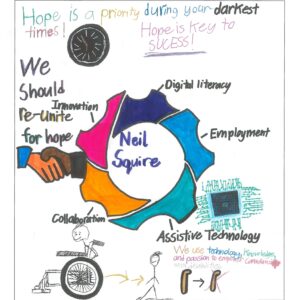 Hope is a priority during your darkest
times!
Hope is key to
SUCESS!
We
Should
Re-Unite
for hope
Digital literacy
Innovation
Neil
Squire
Employment
Collaboration
Assistive Technology
We use technology,
and passion to empower